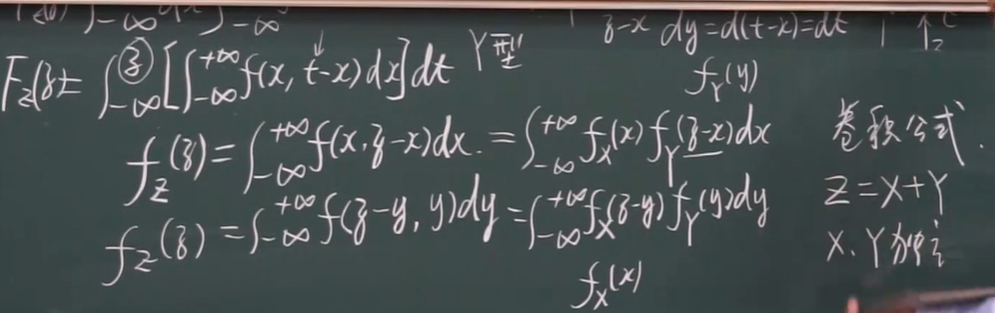 z-x dy=d(t-x)=dt
F_Z(z)=∫_{-∞}^{z}[∫_{-∞}^{+∞}f(x,t-x)dx]dt Y型
f_Y(y)
f_Z(z)=∫_{-∞}^{+∞}f(x,z-x)dx.=∫_{-∞}^{+∞}f_X(x)f_Y(z-x)dx 卷积公式.
f_Z(z)=∫_{-∞}^{+∞}f(z-y,y)dy=∫_{-∞}^{+∞}f_X(z-y)f_Y(y)dy Z=X+Y
f_X(x) X、Y